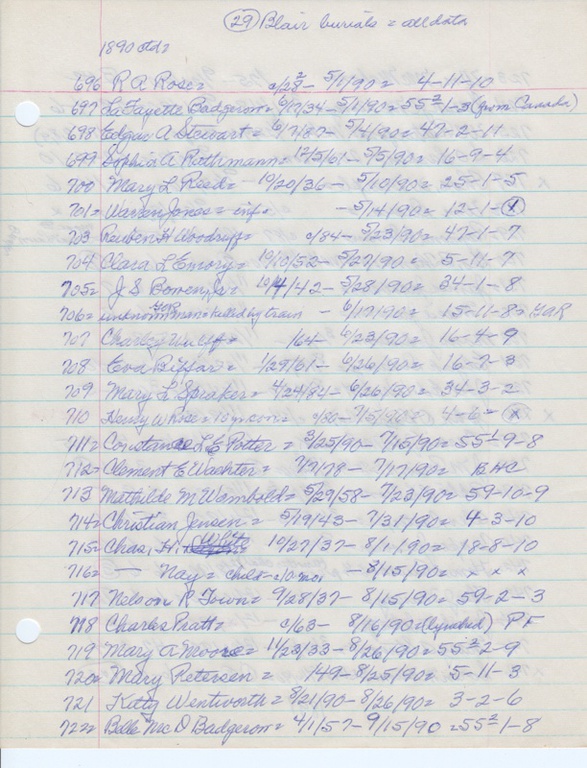 (29) Blair burials = all data
1890 ctd =
696 R A Rose = c/28² - 5/1/90 = 4-11-10
697 La Fayette Badgerow = 9/17/34 - 5/1/90 = 55²-1-8 (from Canada)
698 Edgar A Stewart = 6/7/87 - 5/4/90 = 47-2-11
699 Sophia A Rothmann = 12/5/61 - 5/5/90 = 16-9-4
700 Mary L Reed = 10/20/36 - 5/10/90 = 25-1-5
701 = Warren Jones = inf = - 5/14/90 = 12-1-(x)
703 Reuben H Woodruff = c/84 - 5/23/90 = 47-1-7
704 Clara L Emory = 10/10/52 - 5/27/90 = 5-11-7
705 = J S Bowen, Jr = 10/4/42 - 5/28/90 = 34-1-8
706 = unknown GAR man = killed by train - 6/17/90 = 15-11-8 = GAR
707 Charley = /64 - 6/23/90 = 16-4-9
708 Eva Biffar = 1/29/61 - 6/26/90 = 16-7-3
709 Mary L Spraker = 4/24/84 - 6/26/90 = 34-3-2
710 Henry W = 10 yr = c/80 - 7/5/90 = 4-6 = (x)
711 = Constance L E Potter = 3/25/90 - 7/15/90 = 55¹-9-8
712 = Clement E Wachter = 7/7/78 - 7/17/90 = BHC
713 Mathilde M Wambold = 5/29/58 - 7/23/90 = 59-10-9
714 = Christian Jensen = 5/19/43 - 7/31/90 = 4-3-10
715 = Chas, H. White 10/27/37 - 8/1/90 = 18-8-10
716 = — Nay = child = c/0 mos - 8/15/90 = x x x
717 Nelson R Town = 9/28/37 - 8/15/90 = 59-2-3
718 Charles Pratt = c/63 - 8/16/90 = (lynched) PF
719 Mary A Moore = 11/23/33 - 8/26/90 = 55²-2-9
720 = Mary Petersen = /49 - 8/25/90 = 5-11-3
721 Kitty Wentworth = 8/21/90 - 8/26/90 = 3-2-6
722 = Belle McD Badgerow = 4/1/57 - 9/15/90 = 55²-1-8